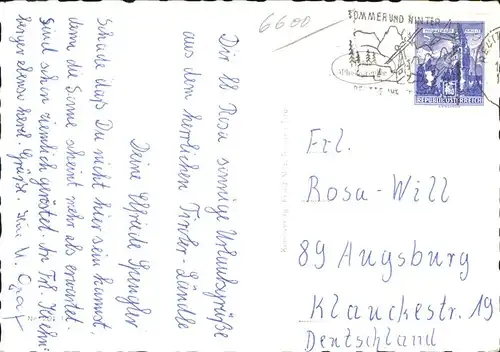 6600
SOMMER UND WINTER
REPUBLIK ÖSTERREICH
Dir lb Rosa sonnige Urlaubsgrüße
aus dem herrlichen Tiroler-Ländle
Deine Elfriede Spengler
Schade daß Du nicht hier sein kannst,
denn die Sonne scheint mehr als erwartet.
Sind schon ziemlich geröstet. An Frl.
ebenso herzl. Grüße. U. Graf
Frl.
Rosa-Will
89 Augsburg
Klauckestr. 19
Deutschland